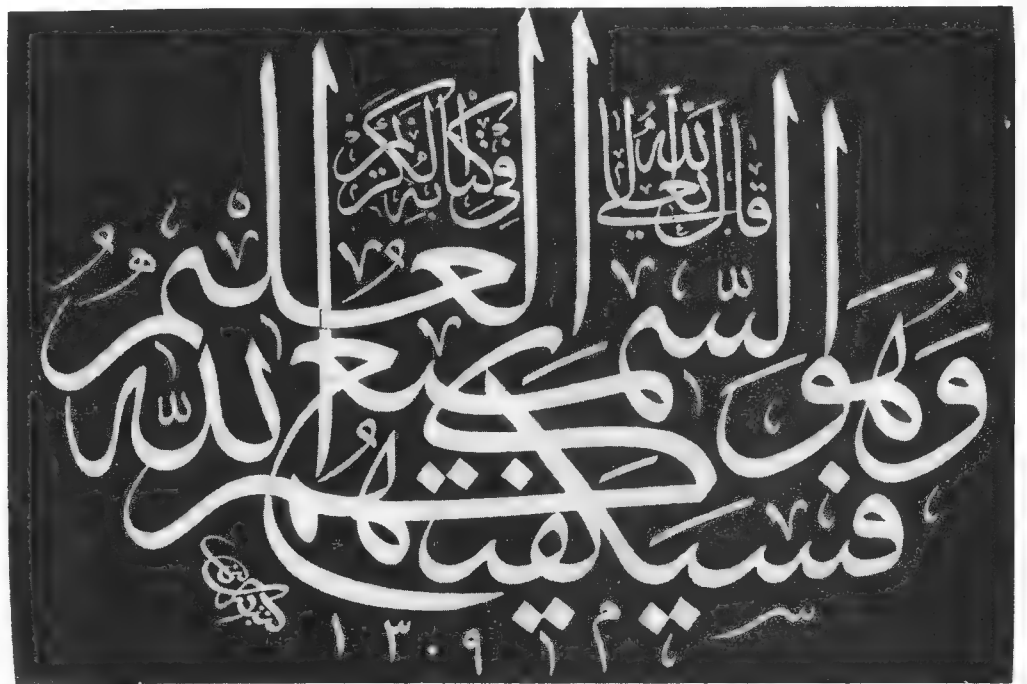 قَالَ اللهُ تَعَالَى فِي كِتَابِهِ الْكَرِيمِ
فَسَيَكْفِيكَهُمُ اللهُ
وَهُوَ السَّمِيعُ الْعَلِيمُ